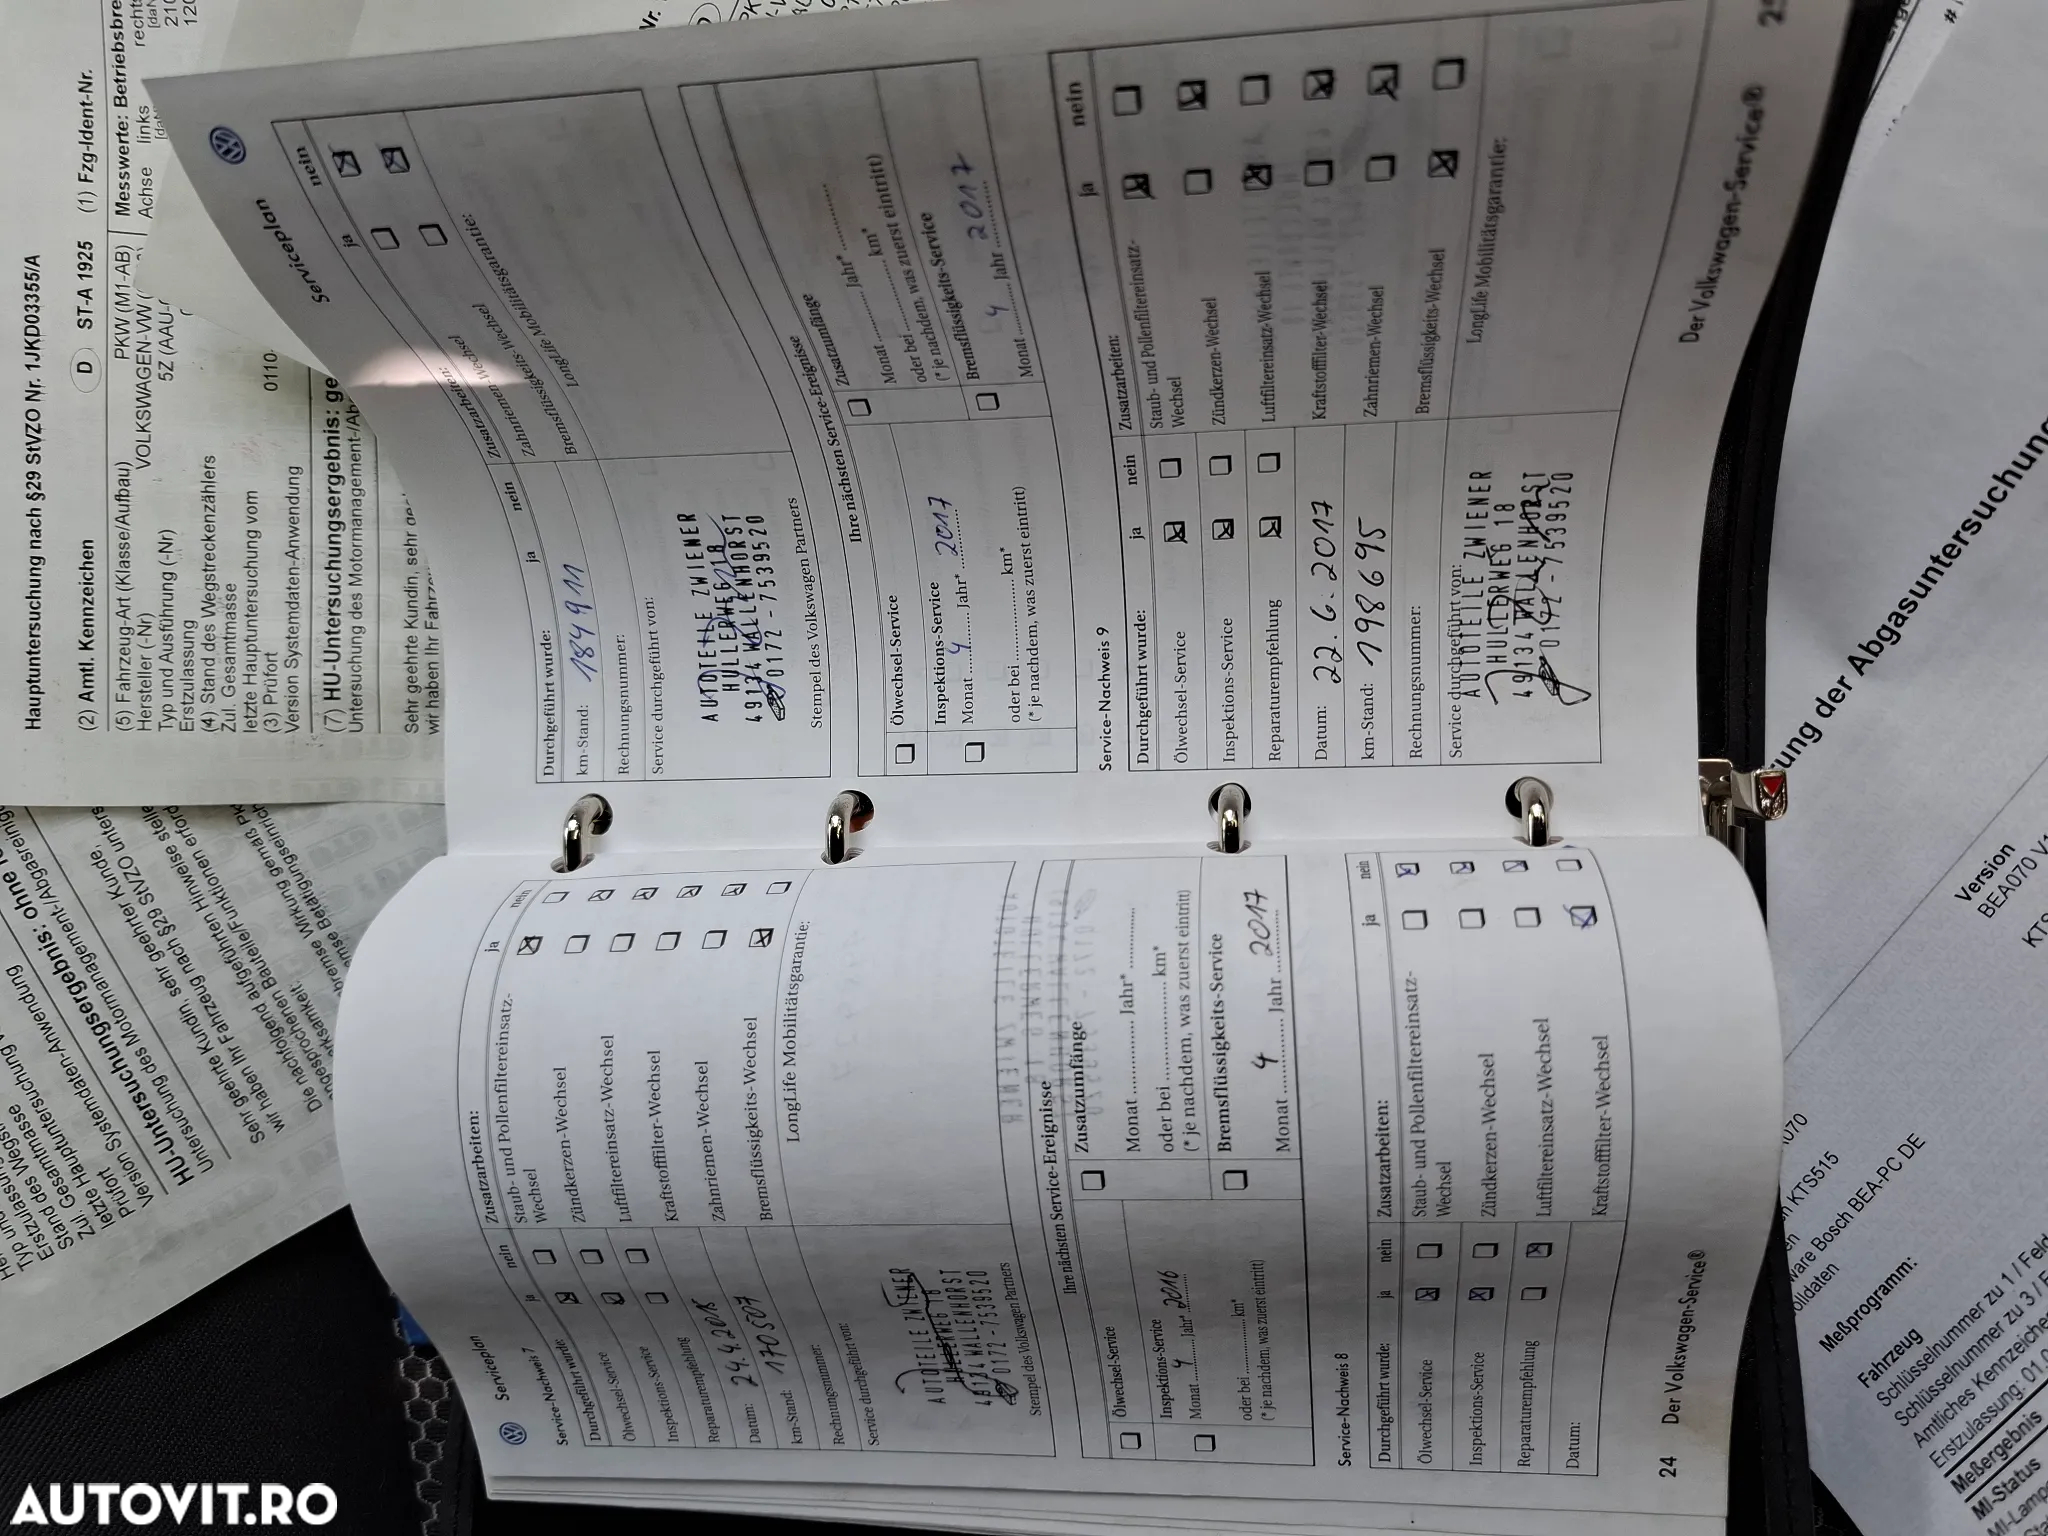 Serviceplan
Service-Nachweis 7
Durchgeführt wurde:
ja
nein
Ölwechsel-Service
Inspektions-Service
Reparaturempfehlung
Datum: 24.4.2015
km-Stand: 170507
Rechnungsnummer:
Service durchgeführt von:
AUTOTEILE ZWIENER
HULLERWEG 18
49134 WALLENHORST
0172-7539520
Stempel des Volkswagen Partners
Zusatzarbeiten:
ja
nein
Staub- und Pollenfiltereinsatz-
Wechsel
Zündkerzen-Wechsel
Luftfiltereinsatz-Wechsel
Kraftstofffilter-Wechsel
Zahnriemen-Wechsel
Bremsflüssigkeits-Wechsel
LongLife Mobilitätsgarantie:
Ihre nächsten Service-Ereignisse
Ölwechsel-Service
Inspektions-Service
Monat 4 Jahr* 2016
oder bei ............ km*
(* je nachdem, was zuerst eintritt)
Zusatzumfänge
Monat ............ Jahr* ............
oder bei ............ km*
(* je nachdem, was zuerst eintritt)
Bremsflüssigkeits-Service
Monat 4 Jahr 2017
Service-Nachweis 8
Durchgeführt wurde:
ja
nein
Ölwechsel-Service
Inspektions-Service
Reparaturempfehlung
Datum:
Zusatzarbeiten:
ja
nein
Staub- und Pollenfiltereinsatz-
Wechsel
Zündkerzen-Wechsel
Luftfiltereinsatz-Wechsel
Kraftstofffilter-Wechsel
24 Der Volkswagen-Service®
Serviceplan
Durchgeführt wurde:
ja
nein
km-Stand: 184911
Rechnungsnummer:
Service durchgeführt von:
AUTOTEILE ZWIENER
HULLERWEG 18
49134 WALLENHORST
0172-7539520
Stempel des Volkswagen Partners
Zusatzarbeiten:
ja
nein
Zahnriemen-Wechsel
Bremsflüssigkeits-Wechsel
LongLife Mobilitätsgarantie:
Ihre nächsten Service-Ereignisse
Ölwechsel-Service
Inspektions-Service
Monat 4 Jahr* 2017
oder bei ............ km*
(* je nachdem, was zuerst eintritt)
Zusatzumfänge
Monat ............ Jahr* ............
oder bei ............ km*
(* je nachdem, was zuerst eintritt)
Bremsflüssigkeits-Service
Monat 4 Jahr 2017
Service-Nachweis 9
Durchgeführt wurde:
ja
nein
Ölwechsel-Service
Inspektions-Service
Reparaturempfehlung
Datum: 22.6.2017
km-Stand: 198695
Rechnungsnummer:
Service durchgeführt von:
AUTOTEILE ZWIENER
HULLERWEG 18
49134 WALLENHORST
0172-7539520
Zusatzarbeiten:
ja
nein
Staub- und Pollenfiltereinsatz-
Wechsel
Zündkerzen-Wechsel
Luftfiltereinsatz-Wechsel
Kraftstofffilter-Wechsel
Zahnriemen-Wechsel
Bremsflüssigkeits-Wechsel
LongLife Mobilitätsgarantie:
Der Volkswagen-Service®
Hauptuntersuchung nach §29 StVZO Nr. 1JKD03355/A
(2) Amtl. Kennzeichen D ST-A 1925 (1) Fzg-Ident-Nr.
(5) Fahrzeug-Art (Klasse/Aufbau) PKW (M1-AB)
Hersteller (-Nr) VOLKSWAGEN-VW
Typ und Ausführung (-Nr) 5Z (AAU-
Erstzulassung
(4) Stand des Wegstreckenzählers
Zul. Gesamtmasse
letzte Hauptuntersuchung vom
(3) Prüfort 0110
Version Systemdaten-Anwendung
(7) HU-Untersuchungsergebnis:
Untersuchung des Motormanagement-/Ab
Sehr geehrte Kundin, sehr
wir haben Ihr
Messwerte: Betriebsbre
Achse links
Erstzulassung
Stand des
Zul. Gesamtmasse
letzte Hauptuntersuchung
Prüfort
Version Systemdaten-Anwendung
HU-Untersuchungsergebnis: ohne
Untersuchung des Motormanagement-/Abgasreinig
Sehr geehrte Kundin, sehr geehrter Kunde,
wir haben Ihr Fahrzeug nach §29 StVZO unters
Die nachfolgend aufgeführten Hinweise stelle
der Abgasuntersuchung
Version
BEA070
KTS515
Bosch BEA-PC DE
Meßprogramm:
Fahrzeug
Schlüsselnummer zu 1 / Feld
Schlüsselnummer zu 3 /
Amtliches Kennzeichen
Erstzulassung:
Meßergebnis
MI-Status
AUTOVIT.RO